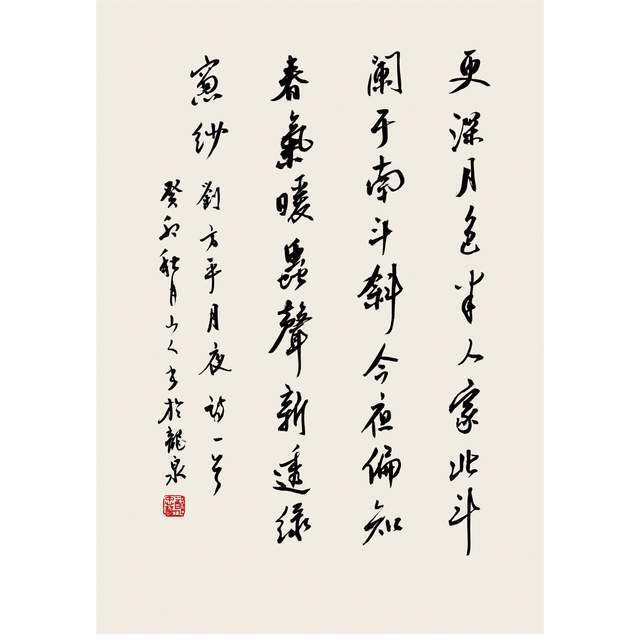 更深月色半人家北斗
闌干南斗斜今夜偏知
春氣暖蟲聲新透綠
窻紗
劉方平月夜詩一首
癸卯秋月山人書於龍泉